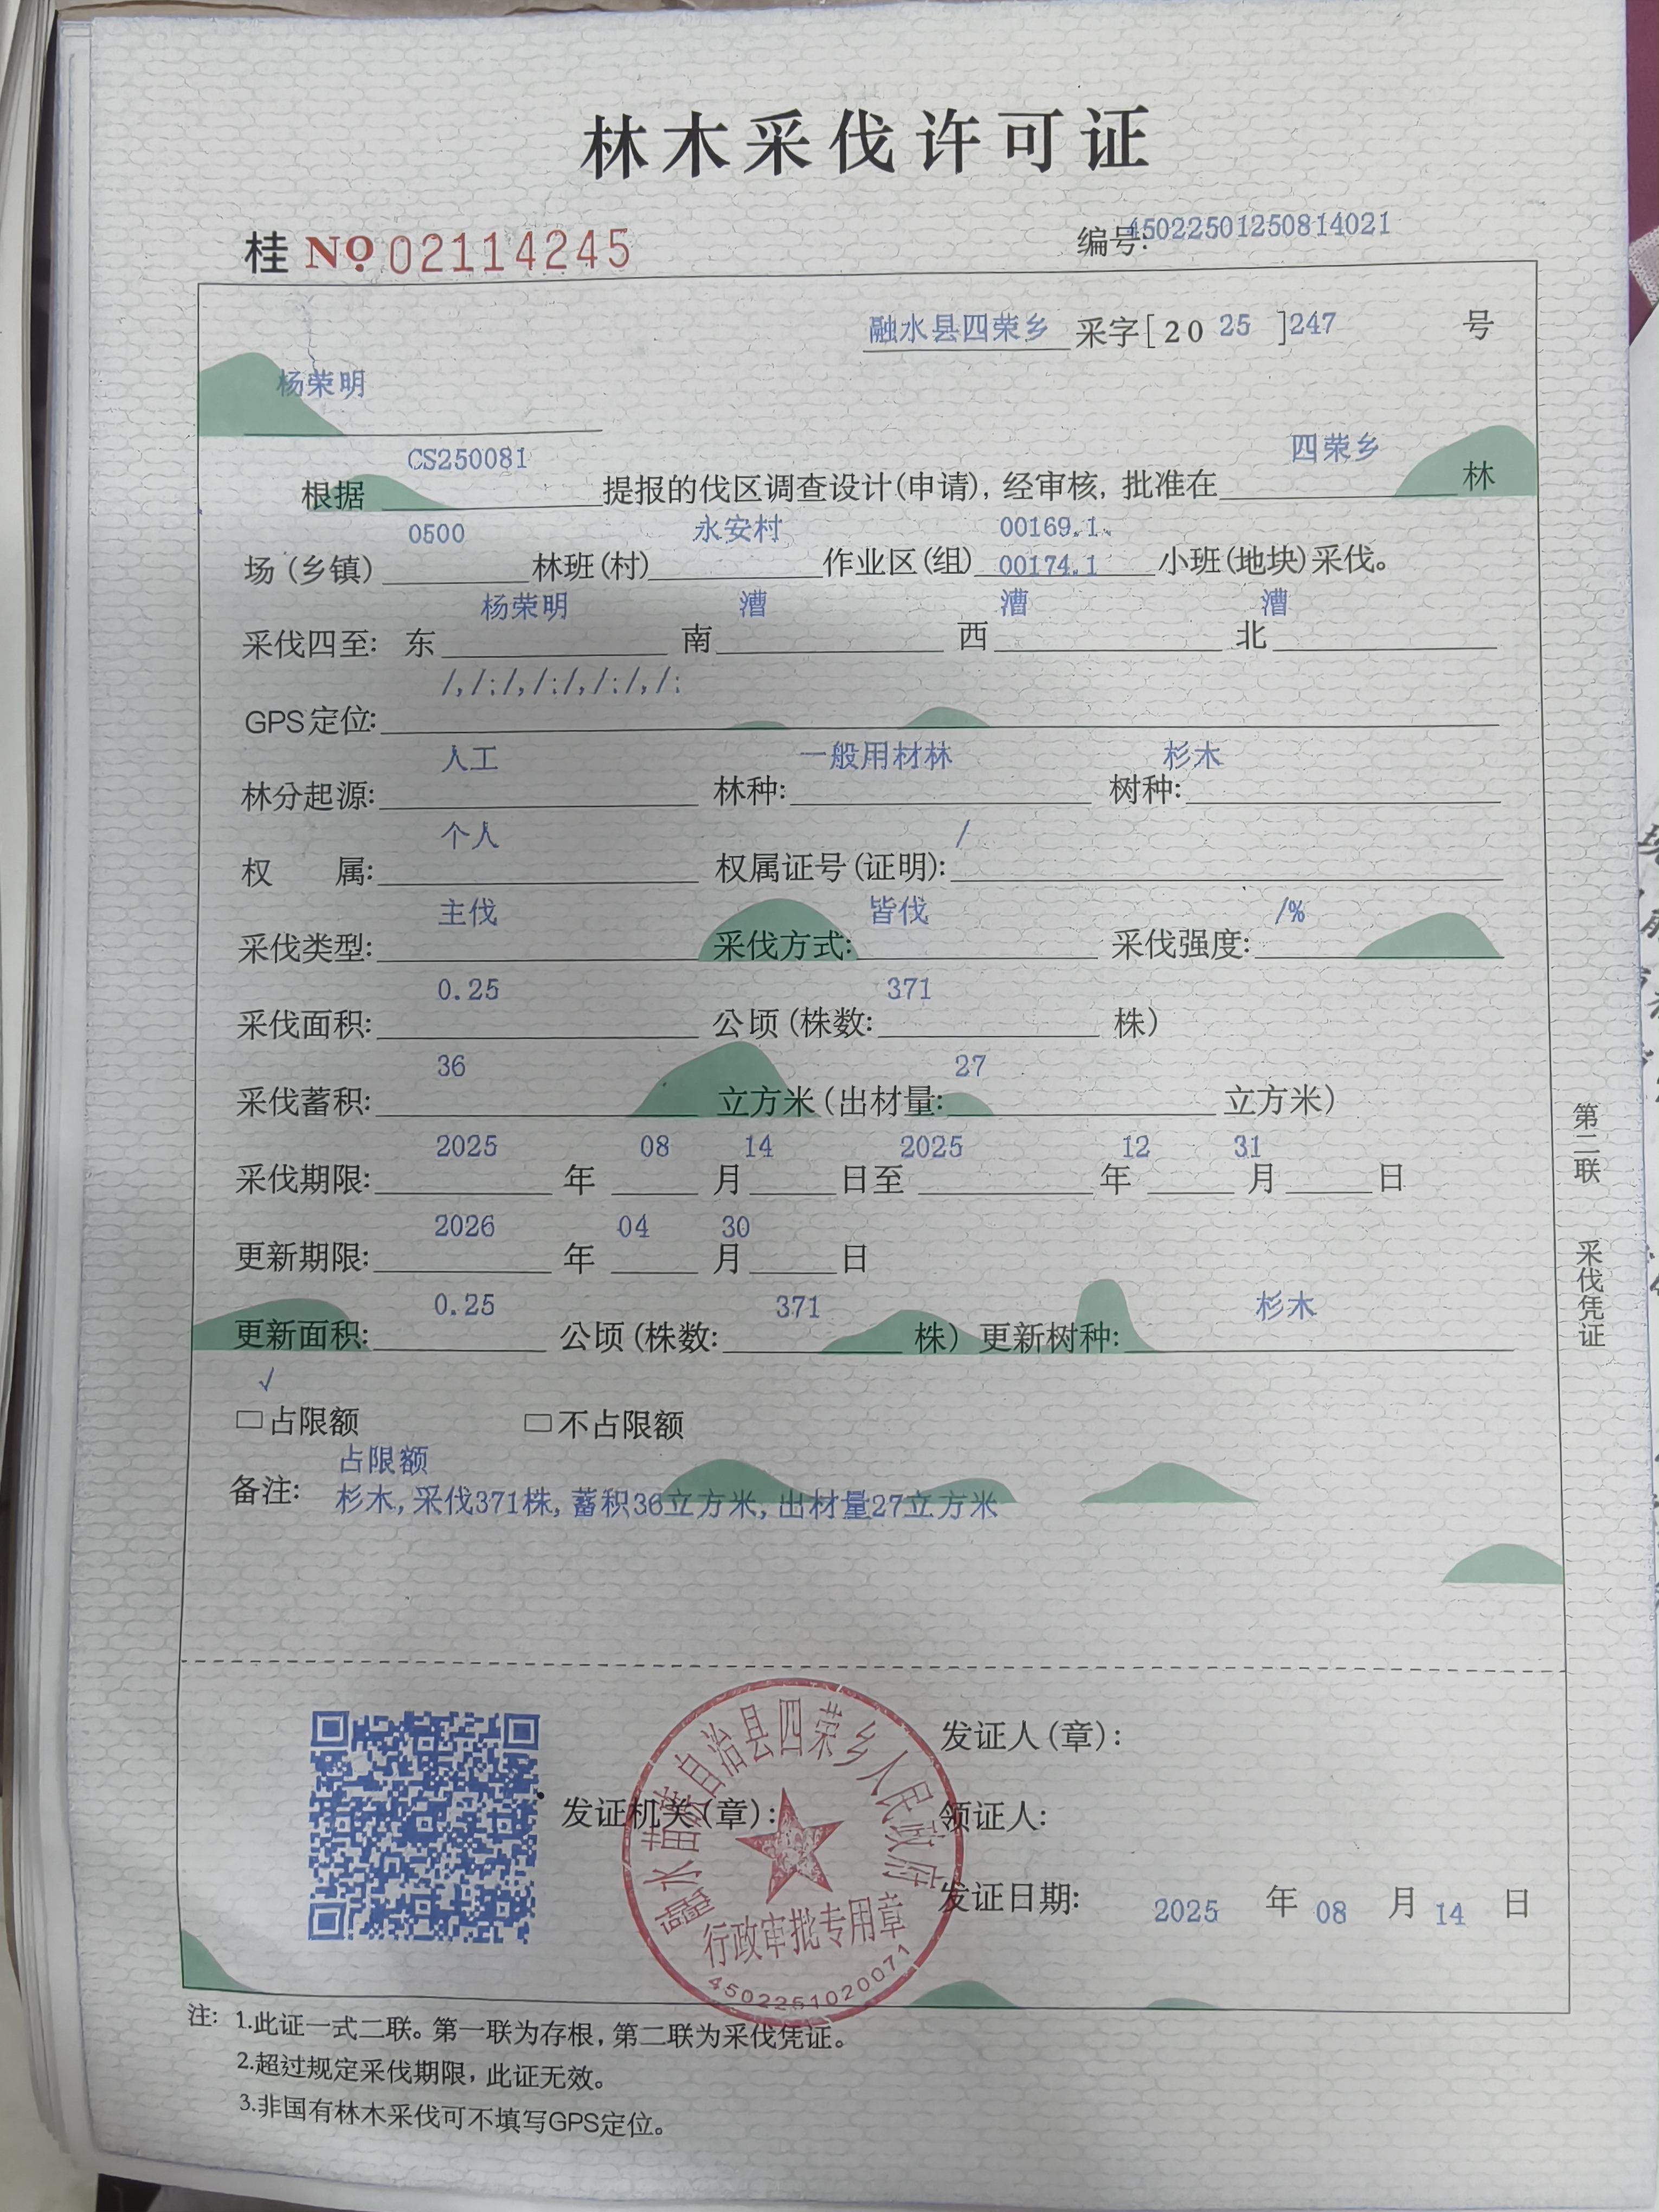 林木采伐许可证
桂 NO 02114245 编号:45022501250814021
融水县四荣乡 采字[20 25 ]247 号
杨荣明
根据 CS250081 提报的伐区调查设计(申请), 经审核, 批准在 四荣乡 林
场(乡镇) 0500 林班(村) 永安村 作业区(组) 00169.1、00174.1 小班(地块)采伐。
采伐四至: 东 杨荣明 南 漕 西 漕 北 漕
GPS定位: /,/;/,/;/,/;/,/;
林分起源: 人工 林种: 一般用材林 树种: 杉木
权 属: 个人 权属证号(证明): /
采伐类型: 主伐 采伐方式: 皆伐 采伐强度: /%
采伐面积: 0.25 公顷(株数: 371 株)
采伐蓄积: 36 立方米(出材量: 27 立方米)
采伐期限: 2025 年 08 月 14 日至 2025 年 12 月 31 日
更新期限: 2026 年 04 月 30 日
更新面积: 0.25 公顷(株数: 371 株) 更新树种: 杉木
√
□占限额 □不占限额
备注: 占限额
杉木,采伐371株,蓄积36立方米,出材量27立方米
第二联 采伐凭证
发证人(章):
发证机关(章):
领证人:
发证日期: 2025 年 08 月 14 日
融水苗族自治县四荣乡人民政府
行政审批专用章
4502251020071
注: 1.此证一式二联。第一联为存根,第二联为采伐凭证。
2.超过规定采伐期限,此证无效。
3.非国有林木采伐可不填写GPS定位。